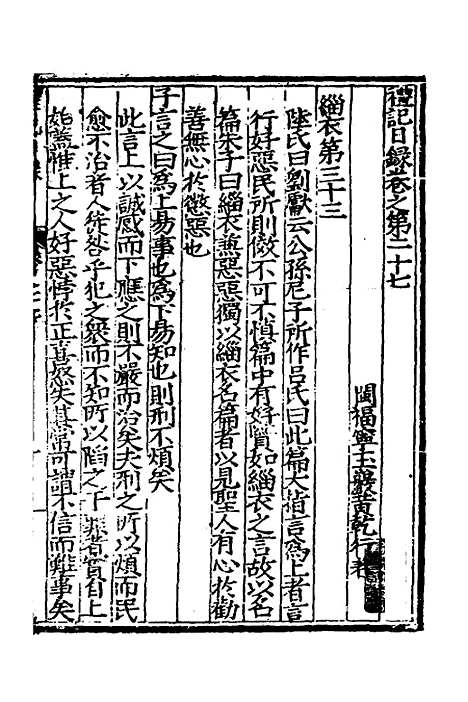 禮記日錄卷之第二十七
閩福寧玉巖黃乾行著
緇衣第三十三
陸氏曰劉瓛云公孫尼子所作吕氏曰此篇大㫖言爲上者言
行好惡民所則傚不可不慎篇中有好賢如緇衣之言故以名
篇朱子曰緇衣兼惡惡獨以緇衣名篇者以見聖人有心於勸
善無心於懲惡也
子言之曰爲上易事也爲下易知也則刑不煩矣
此言上以誠感而下應之則不嚴而治矣夫刑之所以煩而民
愈不治者人徒咎乎犯之衆而不知所以陷之于難者實自上
始蓋惟上之人好惡悖於正喜怒失其常可謂不信而難事矣